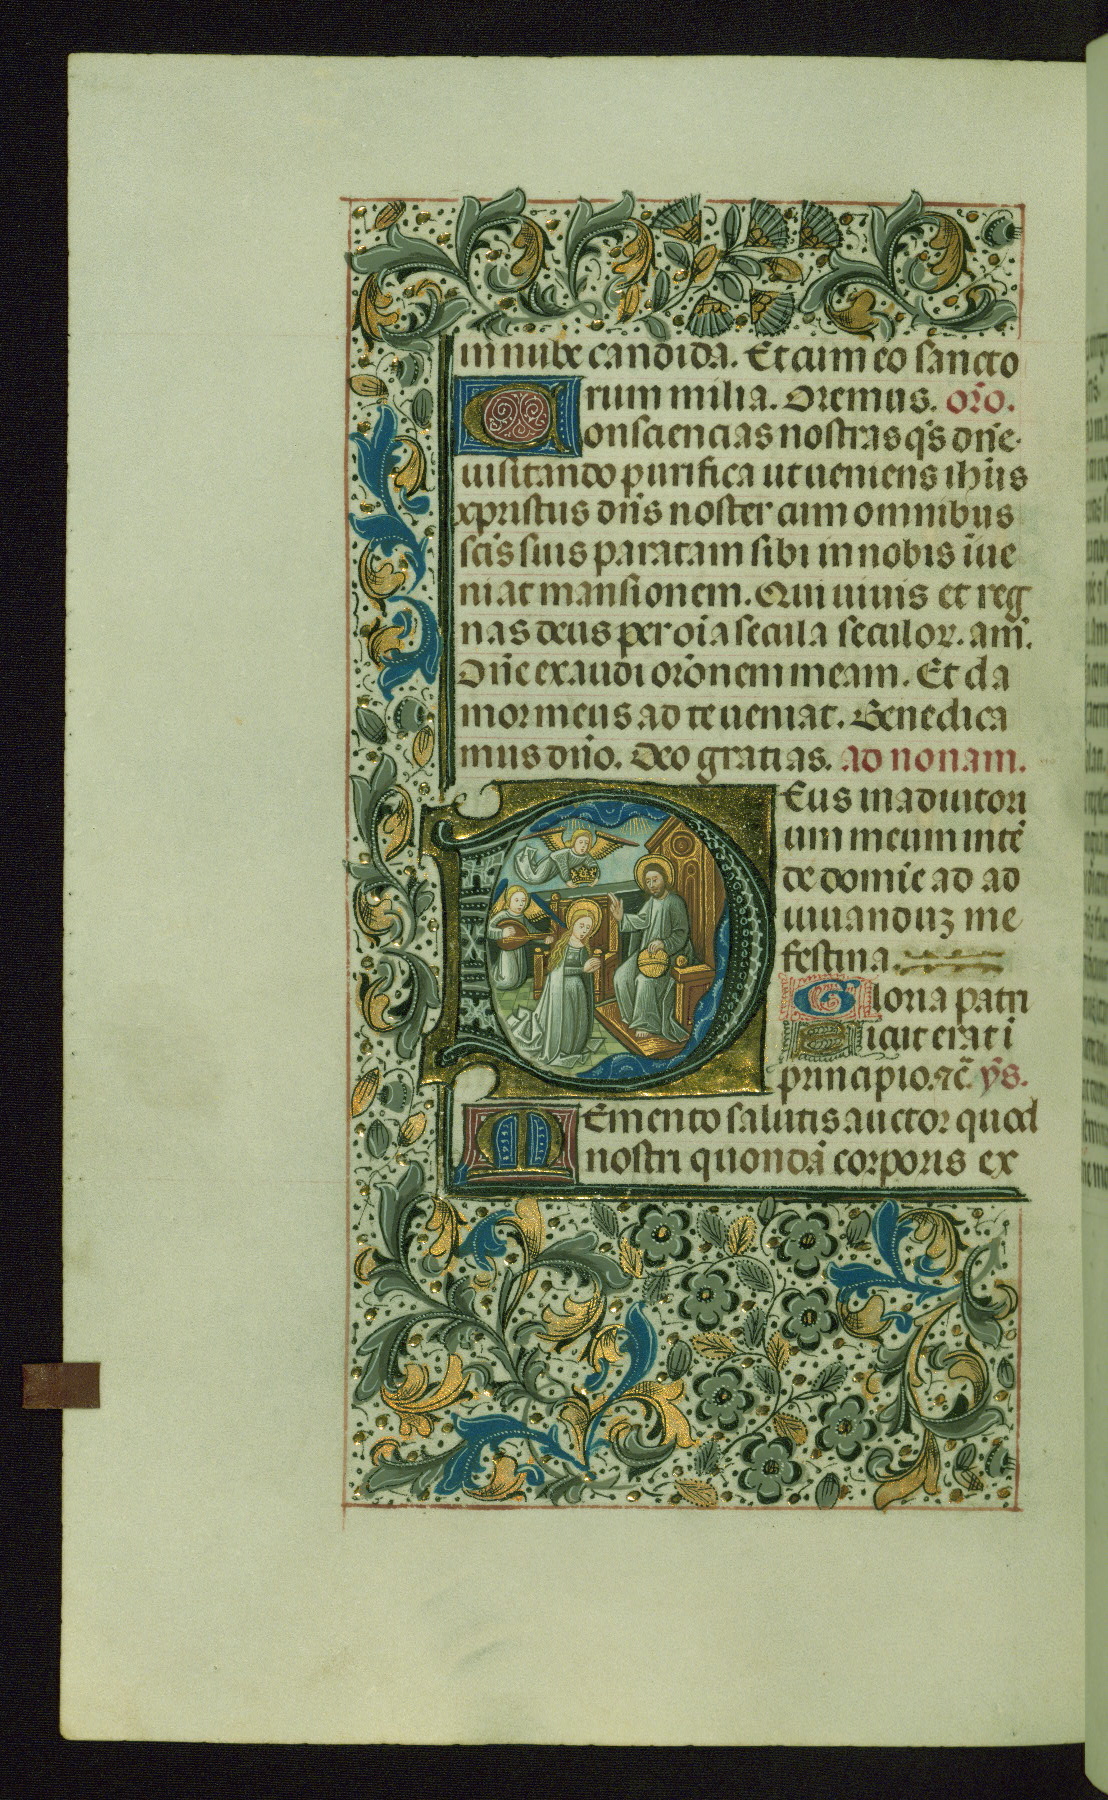 in nube candida. Et cum eo sancto
rum milia. Oremus. or̄o.
Consciencias nostras q̄s dn̄e
uisitando purifica ut ueniens ih̄us
xpristus dn̄s noster cum omnibus
sc̄is suis paratam sibi in nobis īue
niat mansionem. Qui uiuis et reg
nas deus per oīa secula seculor. am̄.
Dn̄e exaudi or̄onem meam. Et cla
mor meus ad te ueniat. Benedica
mus dn̄o. Deo gratias. ad nonam.
Deus in adiutori
um meum intē
de domīe ad ad
iuuanduȝ me
festina.
Gloria patri
Sicut erat ī
principio. ⁊c̄ ȳs.
Memento salutis auctor quod
nostri quondā corporis ex